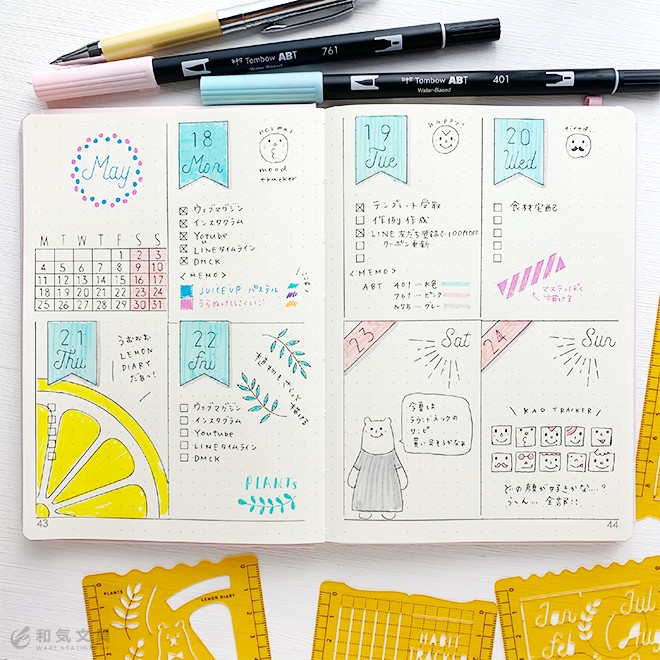 761
Tombow ABT
Water-Based
Tombow ABT
401
Water-Based
May
M T W T F S S
1 2 3
4 5 6 7 8 9 10
11 12 13 14 15 16 17
18 19 20 21 22 23 24
25 26 27 28 29 30 31
18
Mon
normal
mood
tracker
ウェブマガジン
インスタグラム
Yotube
LINEタイムライン
DMCK
<MEMO>
JUICE UP パステル
うらぬけしにくい!
19
Tue
happy!
テンプレート受取
作例作成
LINE 友だち登録で100円OFF
クーポン更新
<MEMO>
ABT 401…水色
761…ピンク
N75…グレー
20
Wed
tired..
食材宅配
マステルぽく
描ける
21
Thu
うおおお
LEMON
DIARY
だあい!
22
Fri
植物もさくっと描ける
ウェブマガジン
インスタグラム
Youtube
LINEタイムライン
DMCK
PLANTS
23
Sat
今夏は
ラウンドネックの
ワンピ
買い足そうかなぁ
24
Sun
KAO TRACKER
どの顔が好きかな…?
うーん… 全部!!
43
44
PLANTS
LEMON DIARY
HABIT
TRACKER
Jan
Feb
Jul
Aug
和気文具
WAKI STATIONERY